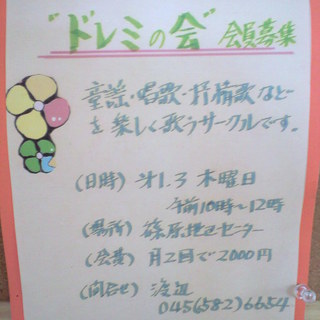 "ドレミの会"会員募集
童謡・唱歌・抒情歌などー
を楽しく歌うサークルです。
(日時) 第1.3 木曜日
午前10時〜12時
(場所) 篠原地区センター
(会費) 月2回で2000円
(問合せ) 渡辺
045(582)6654